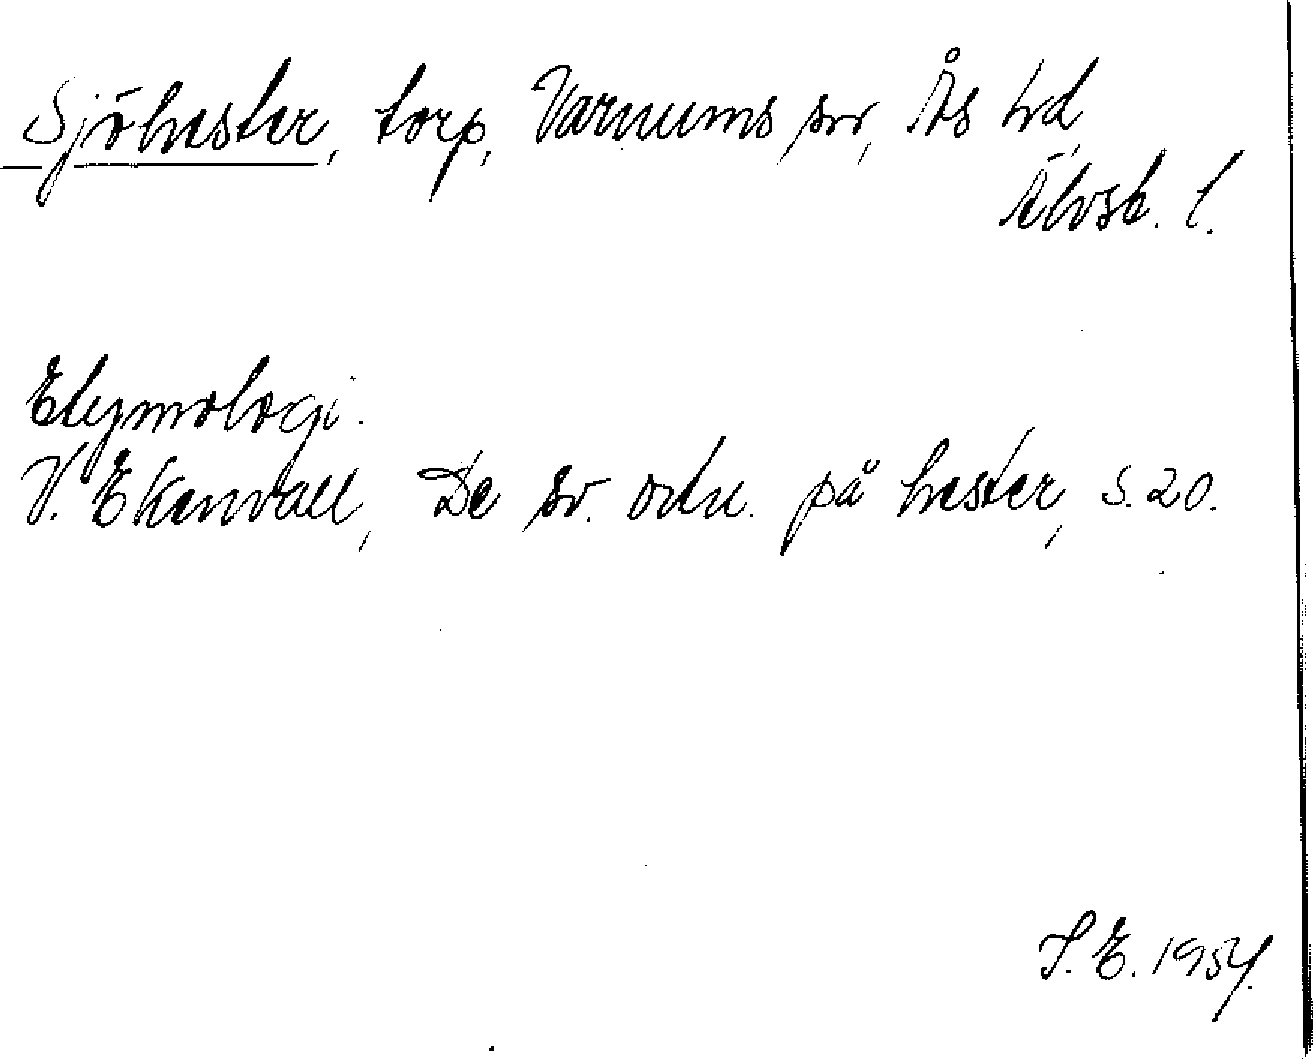 Sjöhester, torp, Varnums sn, Ås hd,
Älvsb. l.
Etymologi.
V. Ekenvall, De sv. ortn. på hester, s. 20.
S. E. 1954.